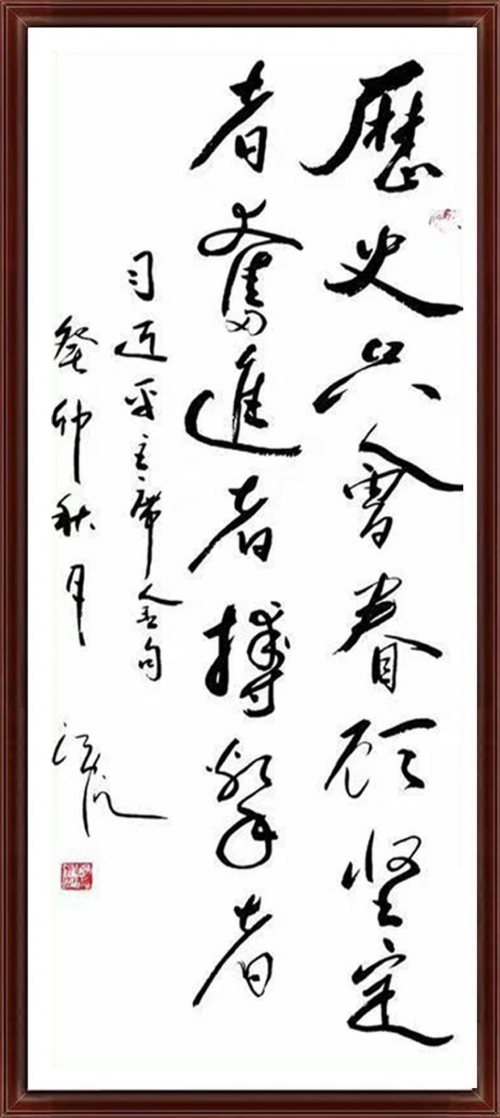 歷史只會眷顧堅定
者奮進者搏擊者
习近平主席金句
癸卯秋月